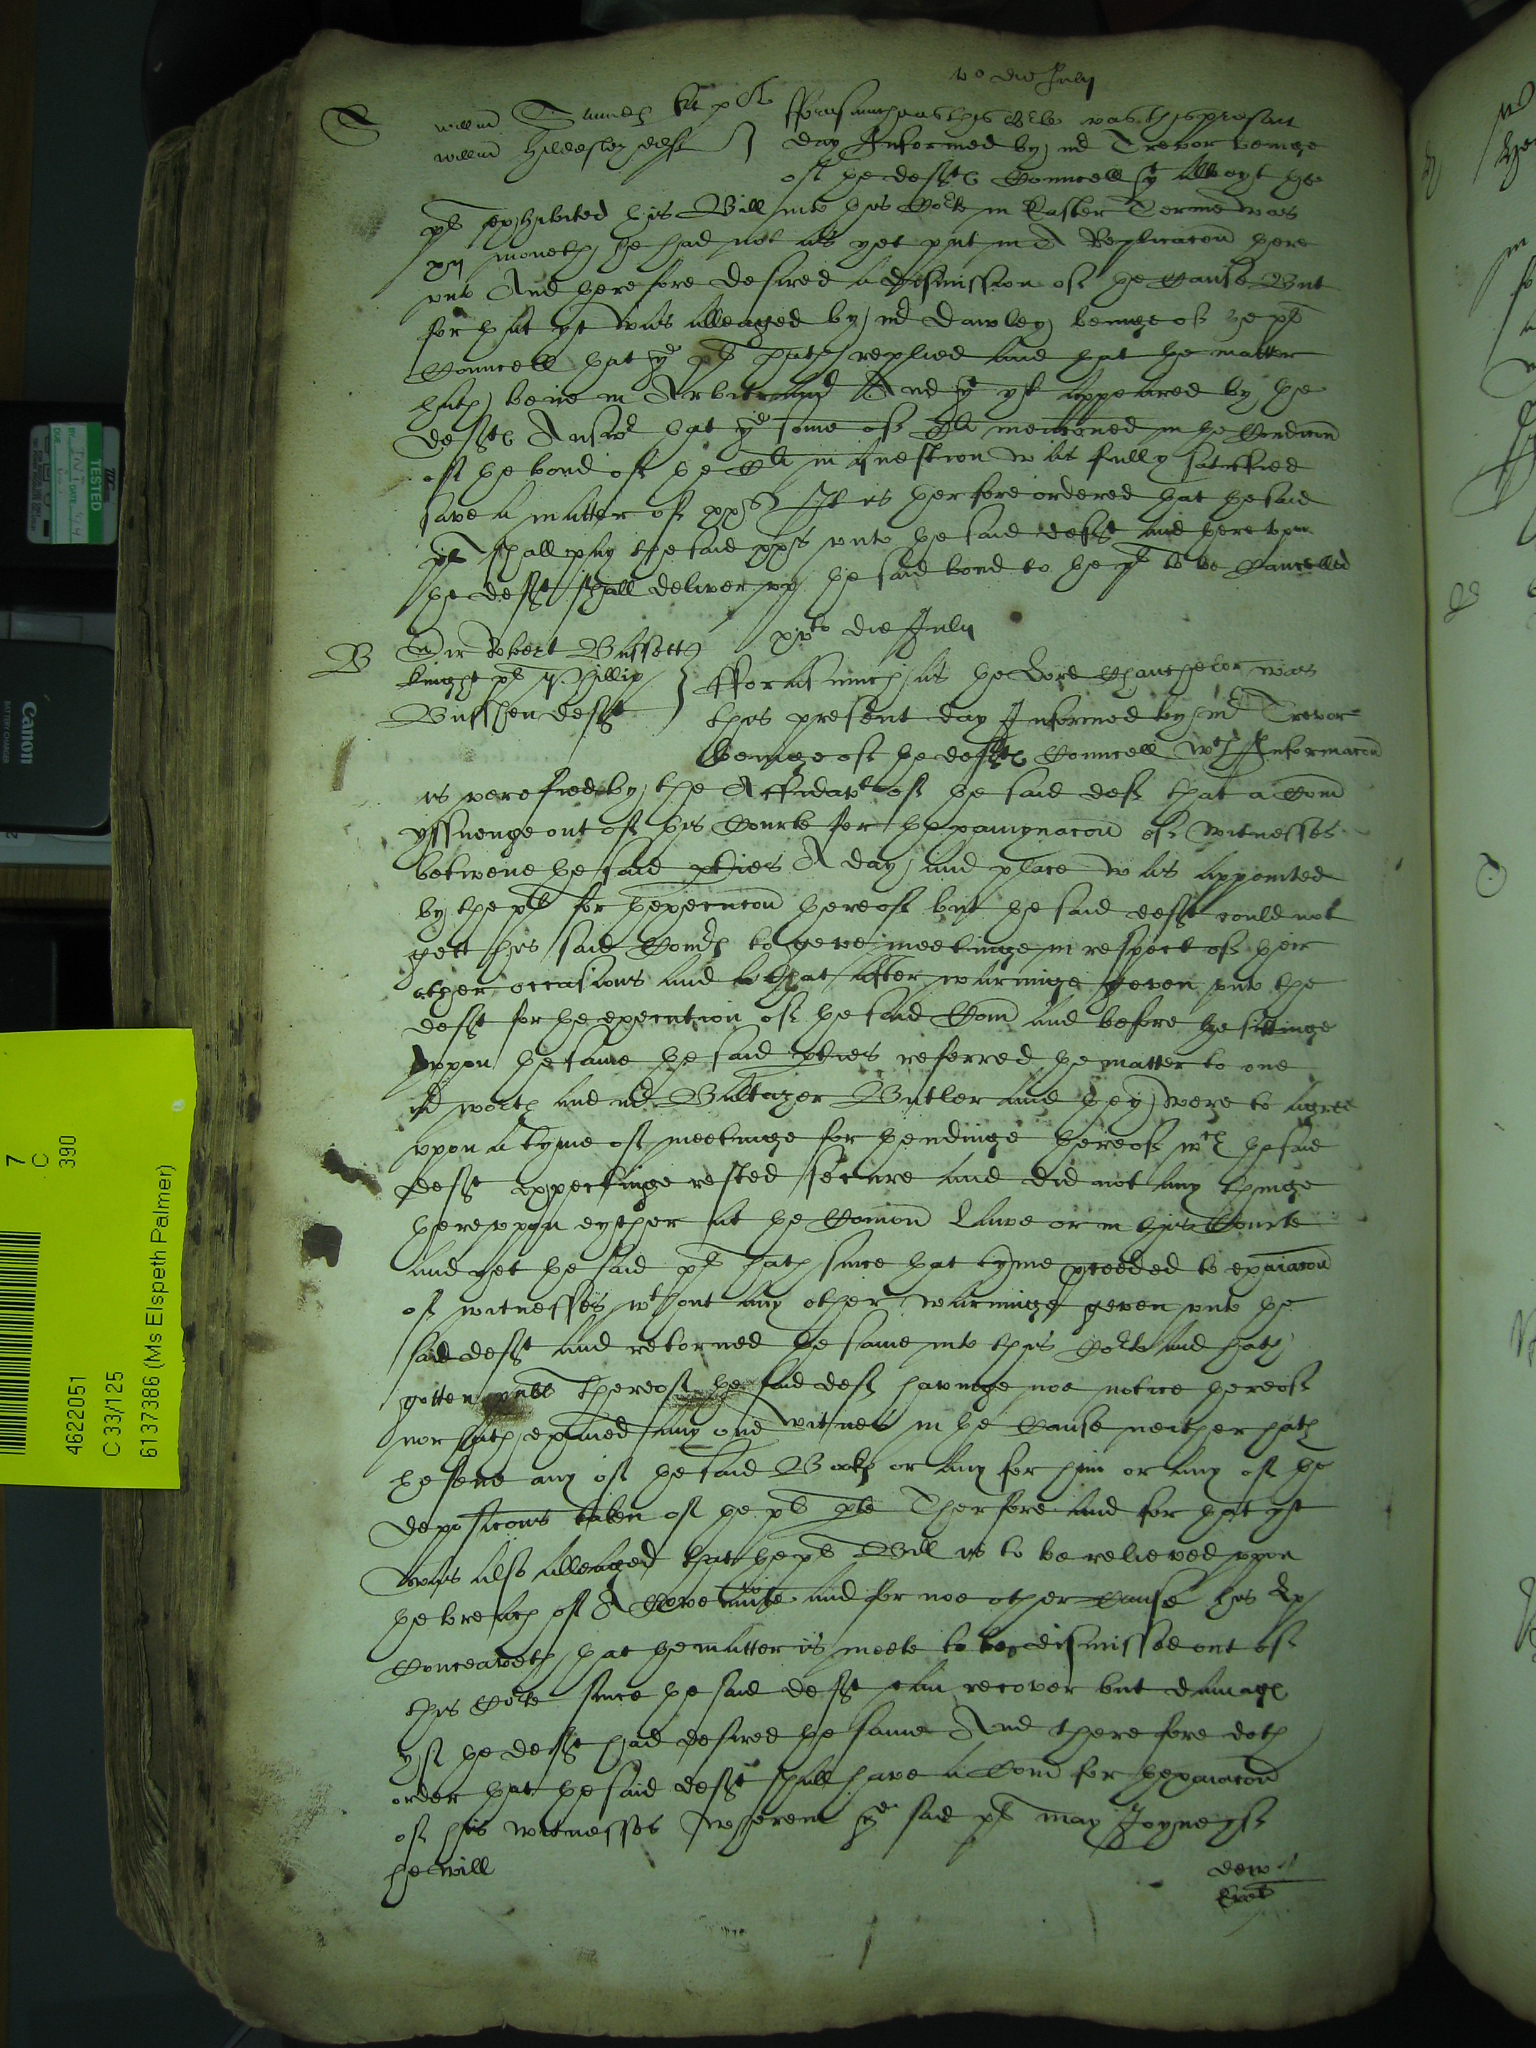 vo die July
S willm Sanndes kt pl
willm Hildesley deft
fforasmuch as this Corte was this present
day Informed by mr Trevor beinge
of the deftes Councell that albeyt the
pl exhibited his Bill into this Corte in Easter Terme was
xii moneth he had not as yet put in A Replicacon there
unto And therefore desired a dismission of the Cause But
for that yt was alleaged by mr Dawley beinge of the pl
Councell that the pl hath replied and that the matter
hath bene in Arbitramt And that yt appeared by the
deftes Answer that the some of mencioned in the Condicon
of the bond of the in question was fully satisfied
save a matter of xxs It is therfore ordered that the said
pl shall pay the said xxs unto the said deft and thereupon
the deft shall deliver upp the said bond to the pl to be Cancelled
xxto die July
B Sir Robert Bassett
knight pl Phillip
deft
fforasmuch as the Lord Chauncelor was
this present day Informed by mr Trevor
beinge of the deftes Councell wch Informacon
is verefied by the Affidavt of the said deft that a Com
yssuenge out of this Courte for thexamynacon of witnesses
betwene the said pties A day and place was appointed
by the pl for thexecucon thereof but the said deft could not
gett his said Comrs to geve meetinge in respect of their
other occasions and that after warninge geven unto the
deft for the execution of the said Com and before the sittinge
uppon the same the said pties referred the matter to one
mr worth and mr Baltazer Butler and they were to agree
upon a tyme of meetinge for thendinge thereof wch the said
deft expectinge rested secure and did not any thinge
thereuppon eyther at the Comon Lawe or in this Courte
and yet the said pl hath since that tyme proceded to exaiacon
of witnesses wthout any other warninge geven unto the
said deft and retorned the same into this Corte and hath
gotten thereof the said deft havinge noe notice thereof
nor hath exaied any one witnes in the Cause neither hath
he sene any of the said Bookes or any for him or any of the
deposicons taken of the pl pte Therfore and for that yt
was also alleaged that the pl Bill is to be relieved uppon
the breach of A Covenante and for noe other Cause this Lp
Conceaveth that the matter is meete to be dismissed out of
this Corte since the said deft can recover but damages
yf the deft had desired the same And therefore doth
order that the said deft shall have a Com for thexaiacon
of his witnesses wherein the said pl may Joyne yf
he will
TESTED
Canon
BATTERY CHARGER
7
C
390
4622051
C 33/125
6137386 (Ms Elspeth Palmer)